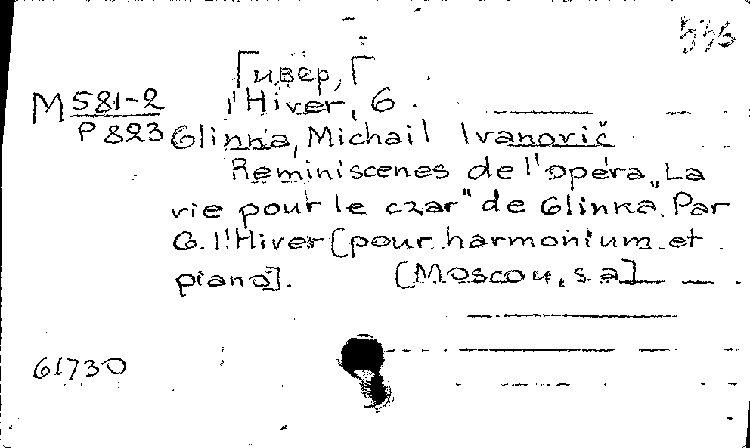 535
Гивер, Г
M 581-2
P 823
l'Hiver, G.
Glinka, Michail Ivanovič
Reminiscenes de l'opéra „La
vie pour le czar" de Glinka. Par
G. l'Hiver [pour harmonium et
piano]. [Moscou, s a]
61730